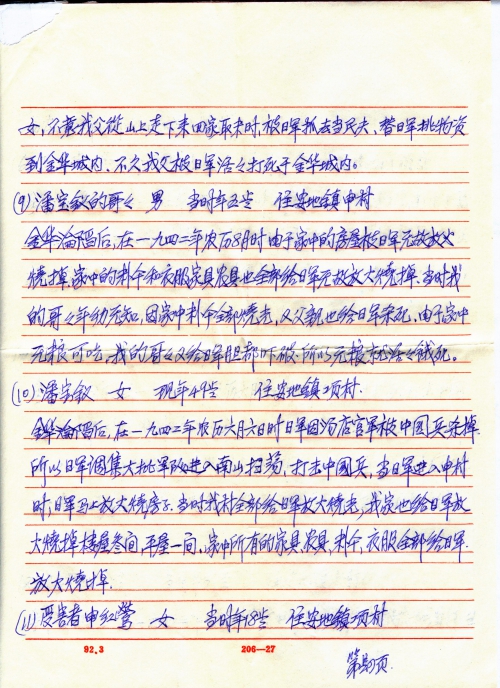 女，不幸我父从山上走下来回家取米时，被日军抓去当民夫、替日军挑物资
到金华城内、不久我父被日军活々打死于金华城内。
(9) 潘宝钗的哥々 男 当时年五岁 住安地镇申村
金华沦陷后，在一九四二年农历8月时由于家中的房屋被日军无故放火
烧掉，家中的利今和衣服家具农具也全部给日军无故放大烧掉、当时我
的哥々年幼无知，因家中利今全部烧光，又父亲也给日军杀死，由于家中
无粮可吃，我的哥々又给日军胆都吓破、所以无粮就活々饿死。
(10) 潘宝钗 女 现年49岁 住安地镇项村
金华沦陷后，在一九四二年农历六月六日时日军因汤店官军被中國兵杀掉
所以日军调集大批军队进入南山扫荡，打击中國兵，当日军进入申村
时，日军马上放大烧房子，当时我村全部给日军放大烧光，我家也给日军放
大烧掉楼屋叁间，平屋一间，家中所有的家具，农具，利今，衣服全部给日军
放大烧掉
(11) 受害者申红莺 女 当时年18岁 住安地镇项村
92.3 206—27
第 页